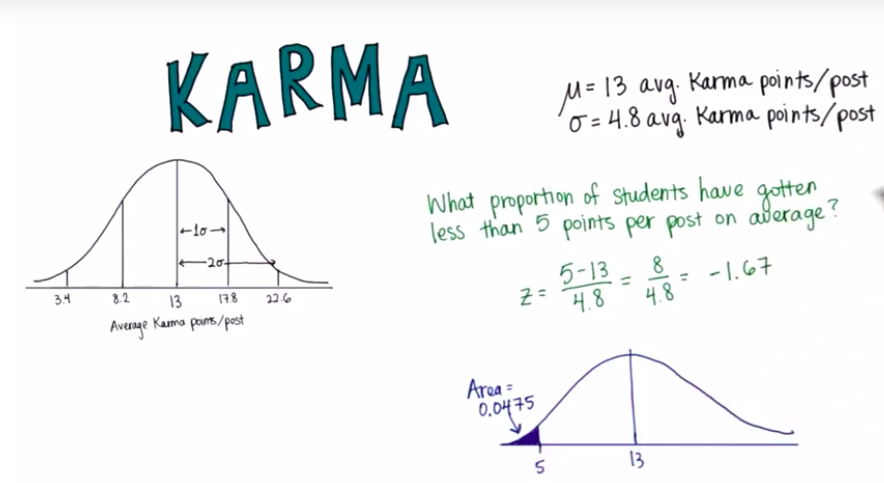 KARMA
μ = 13 avg. Karma points/post
σ = 4.8 avg. Karma points/post
←1σ→
←2σ→
3.4 8.2 13 17.8 22.6
Average Karma points/post
What proportion of students have gotten
less than 5 points per post on average?
z = 5-13/4.8 = 8/4.8 = -1.67
Area =
0.0475
5 13